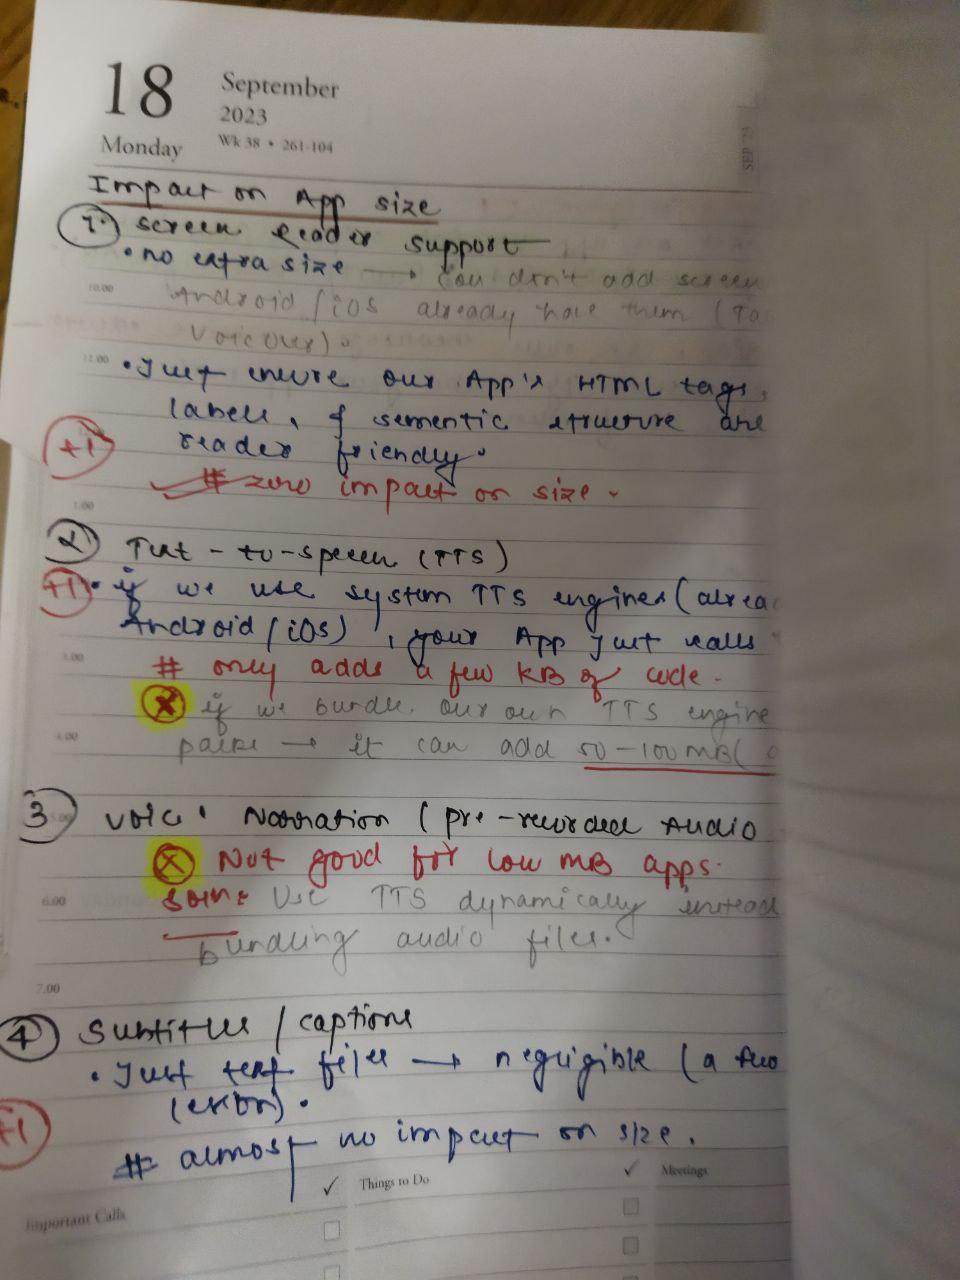 18
September
2023
Monday
Wk 38 • 261-104
SEP '23
Impact on App size
1. screen reader support
• no extra size → You don't add screen
10.00
Android / iOS already have them (Ta
Voiceover).
11.00
• Just ensure our App's HTML tags,
labels, & sementic structure are
reader friendly.
+1
# zero impact on size.
1.00
2 Text-to-speech (TTS)
+1 • if we use system TTS engines (alrea
Android / iOS), your App just calls
3.00
# only adds a few KB of code.
x if we bundle our own TTS engine
4.00
packs → it can add 50-100MB(
3 Voice Narration (pre-recorded Audio
x Not good for low MB apps.
6.00
Soln: Use TTS dynamically instead
bundling audio files.
7.00
4 Subtitles / captions
• Just text files → negligible (a few
+1
# almost no impact on size.
Important Calls
✓
Things to Do
✓
Meetings